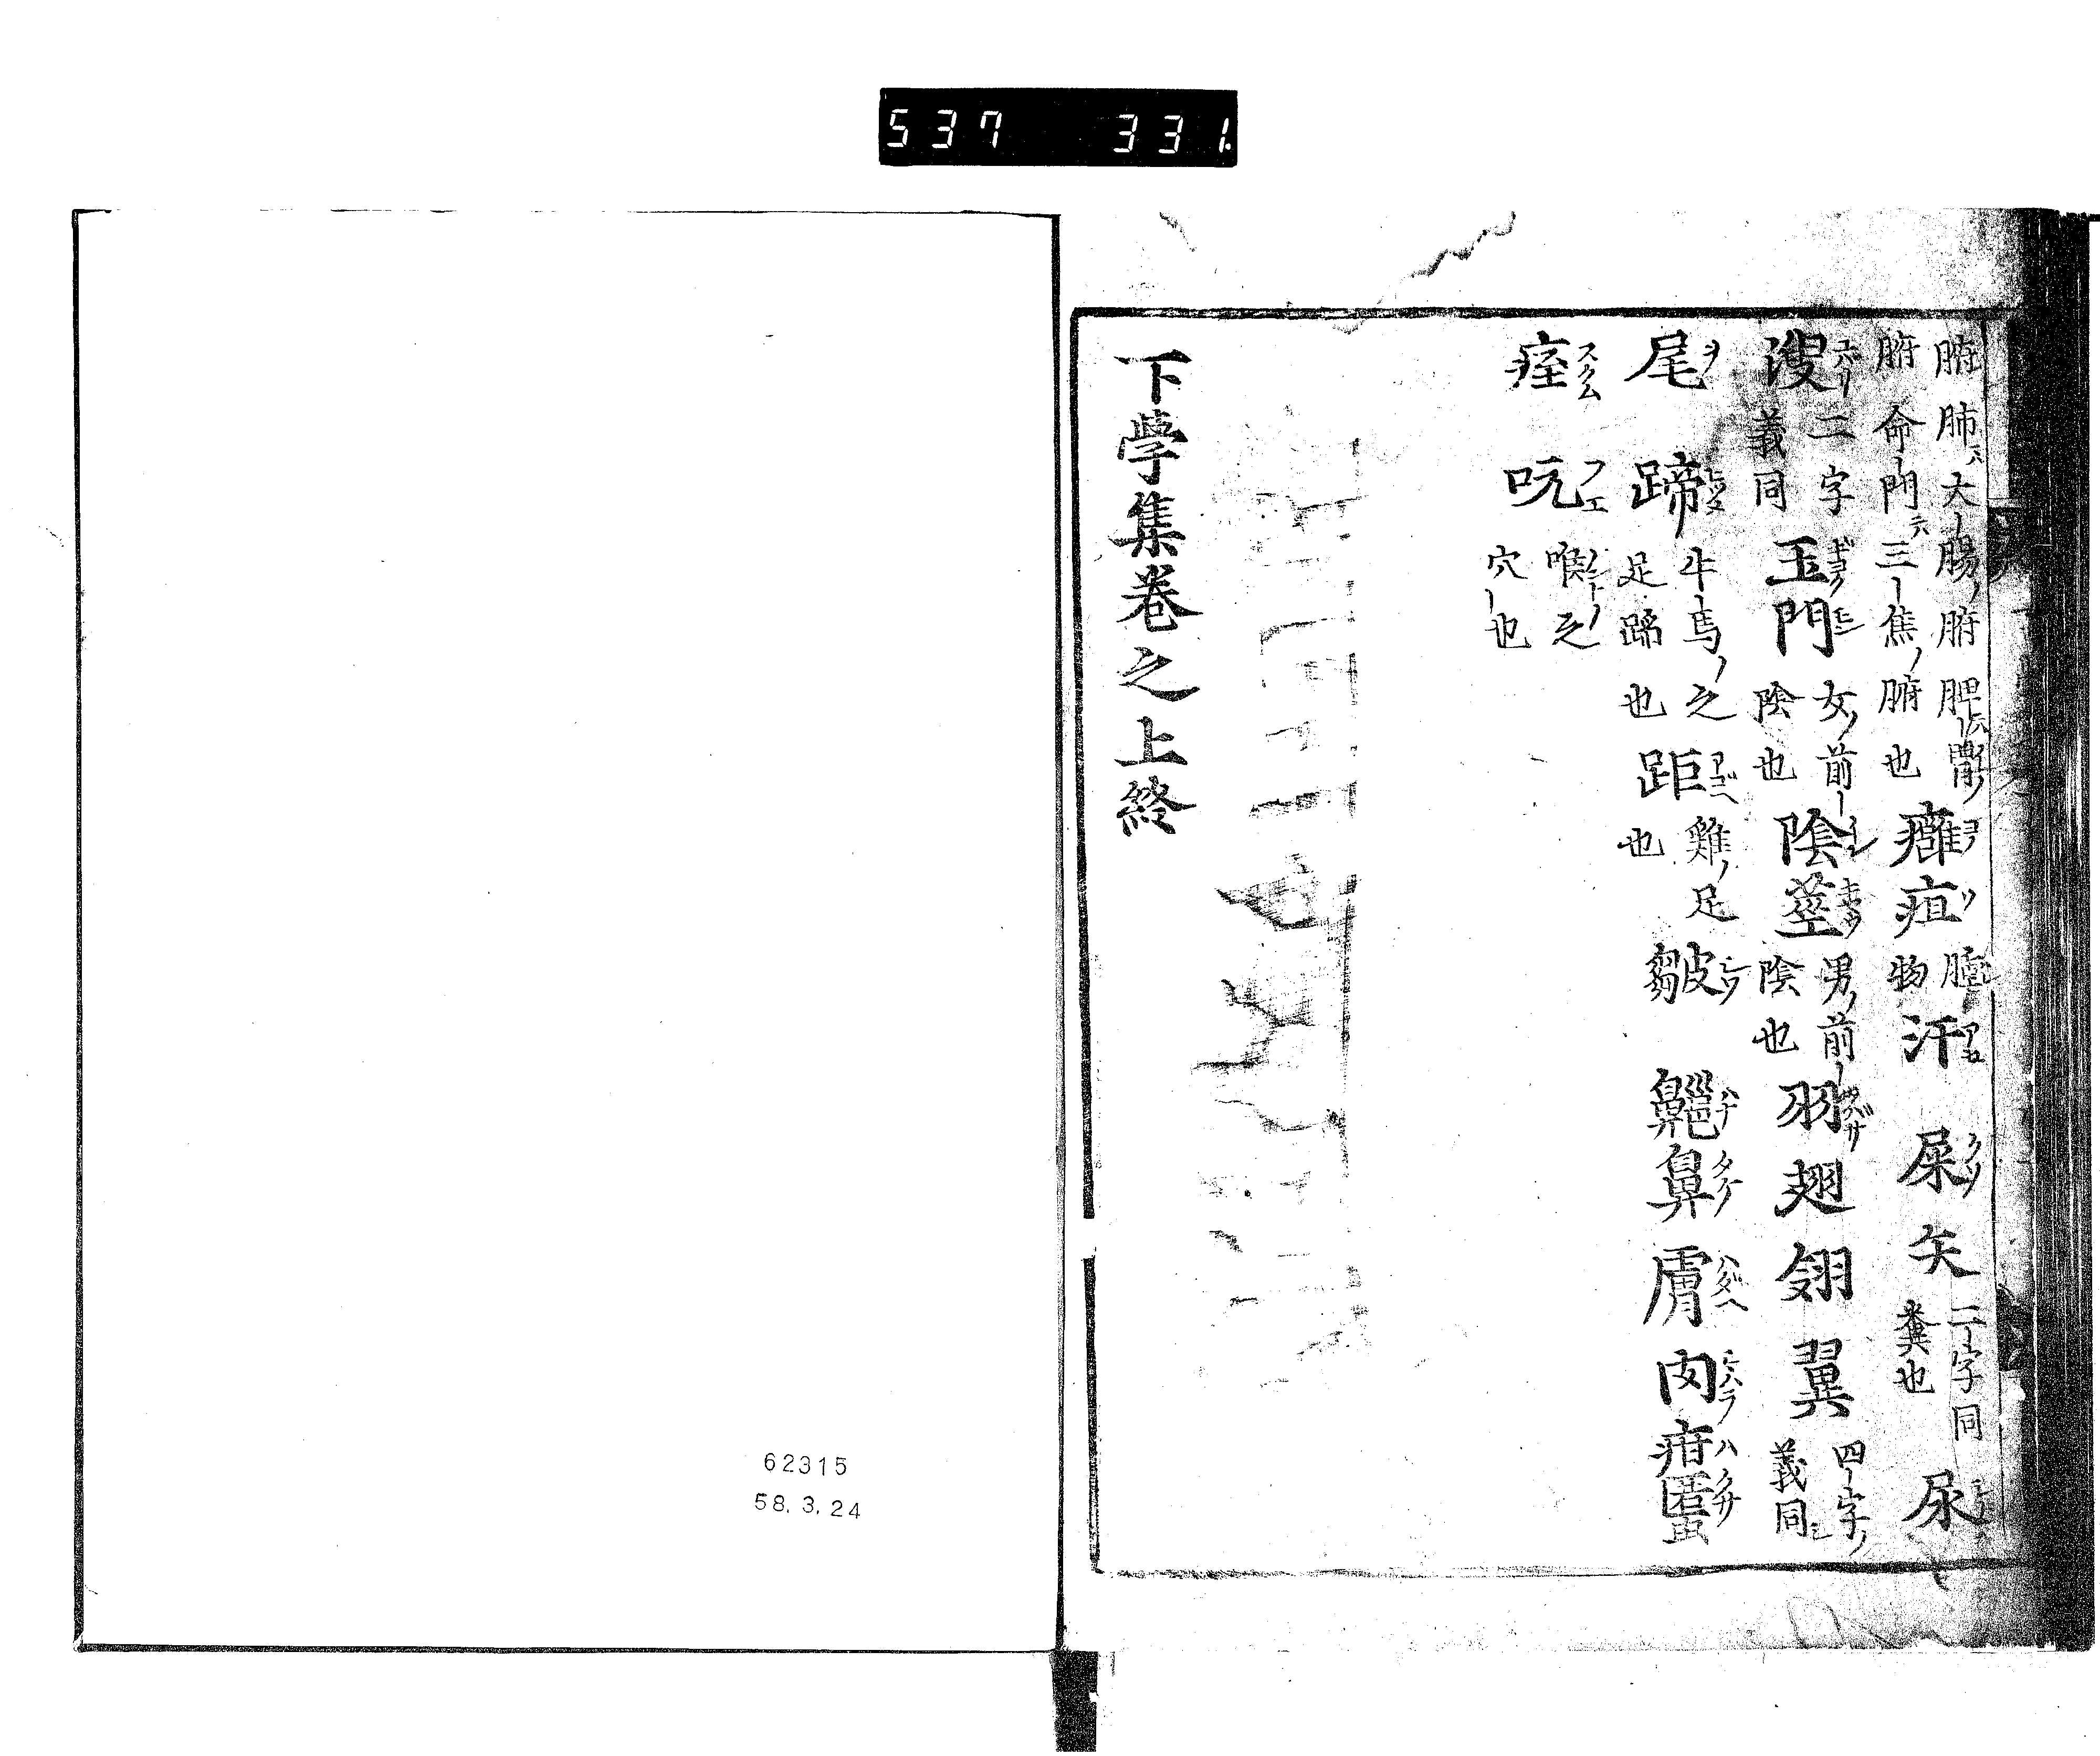 537 331
腑肺ハ大腸ノ腑脾ハ胃ノ
腑命門ハ三焦ノ腑也
癰疽 腫物 汗 屎 矢 二字同 糞也 尿
溲 二字義同 玉門 女ノ前陰也 陰莖 男ノ前陰也 羽 翅 翎 翼 四字ノ義同
尾 蹄 牛馬ノ之足蹄也 距 雞ノ足也 皺 鼻 膚 肉 疳
痓 吭 喉之穴也
下學集卷之上終
62315
58.3.24